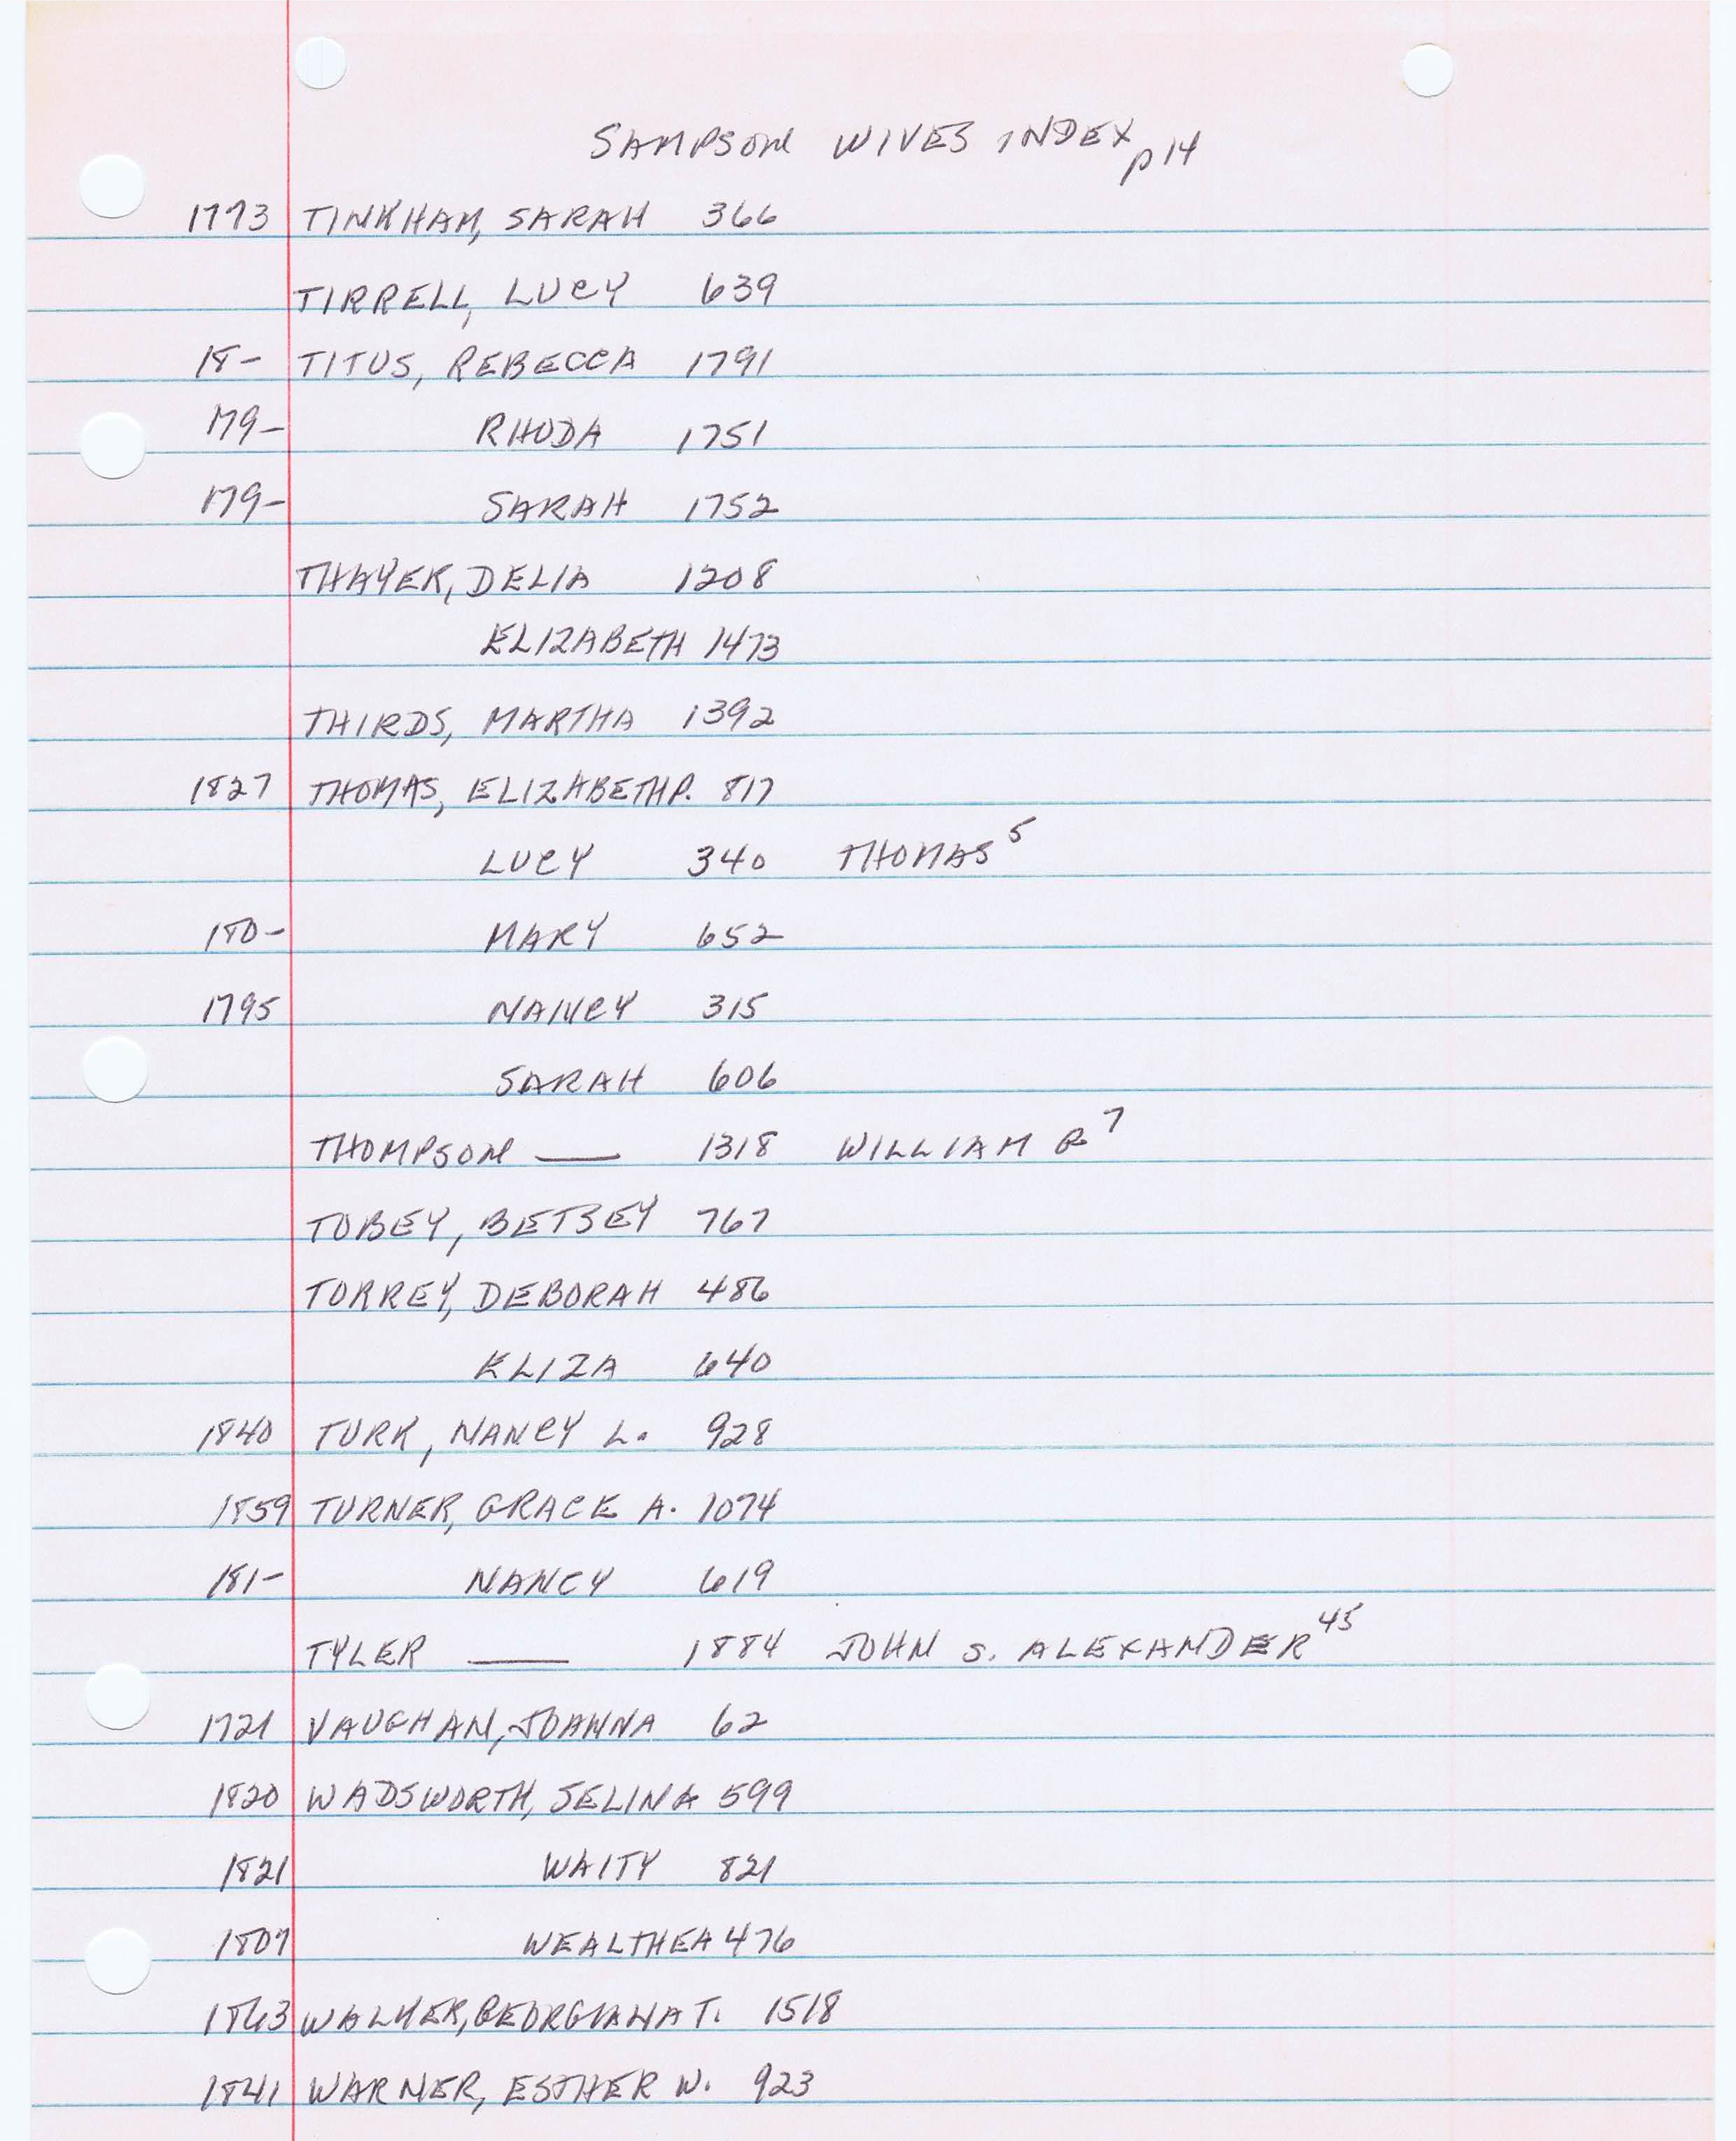 SAMPSON WIVES INDEX p14
1773 TINKHAM, SARAH 366
TIRRELL, LUCY 639
18- TITUS, REBECCA 1791
179- RHODA 1751
179- SARAH 1752
THAYER, DELIA 1208
ELIZABETH 1473
THIRDS, MARTHA 1392
1827 THOMAS, ELIZABETH P. 817
LUCY 340 THOMAS 5
180- MARY 652
1795 NANCY 315
SARAH 606
THOMPSON — 1318 WILLIAM R 7
TOBEY, BETSEY 767
TORREY, DEBORAH 486
ELIZA 640
1840 TURK, NANCY L. 928
1859 TURNER, GRACE A. 1074
181- NANCY 619
TYLER — 1884 JOHN S. ALEXANDER 45
1721 VAUGHAN, JOANNA 62
1820 WADSWORTH, SELINA 599
1821 WAITY 821
1807 WEALTHEA 476
1863 WALKER, GEORGIANA T. 1518
1841 WARNER, ESTHER W. 923